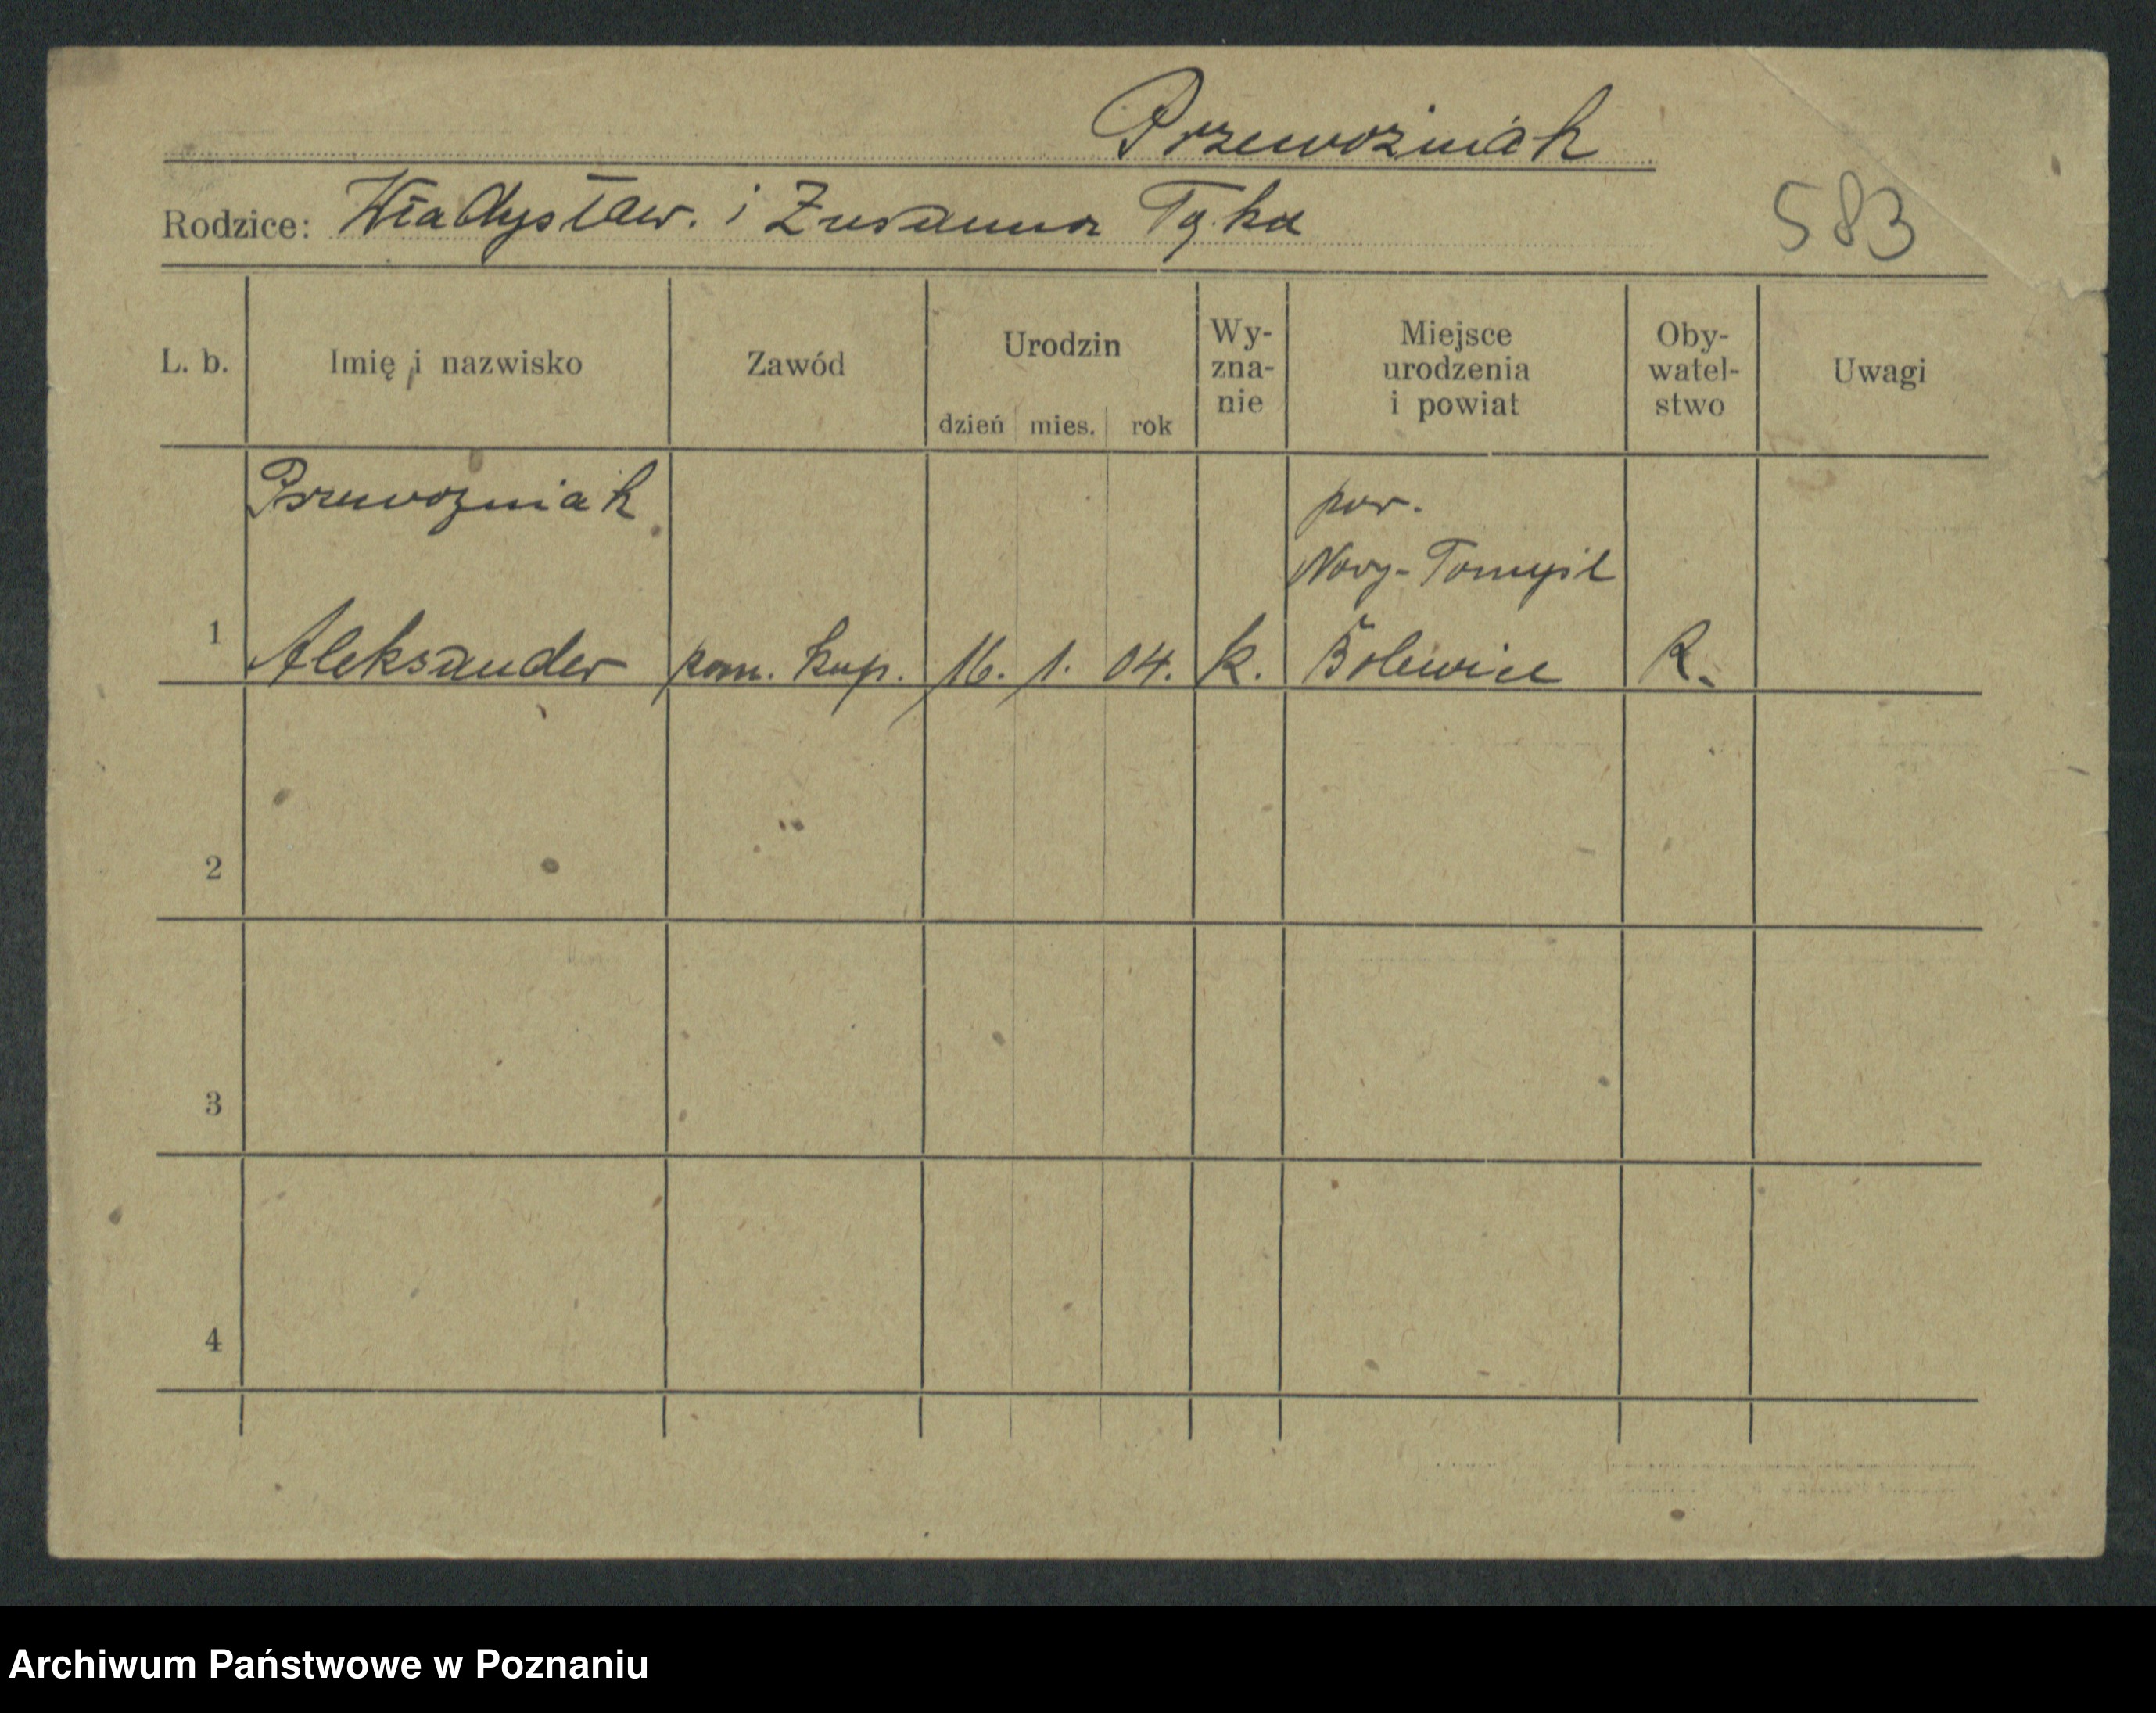 Przewoźniak
Rodzice: Władysław. i Zuzanna
583
L. b. Imię i nazwisko Zawód Urodzin dzień mies. rok Wy-zna-nie Miejsce urodzenia i powiat Oby-watel-stwo Uwagi
Przewozniak pow.
Nowy-Tomyśl
1 Aleksander pom. kup. 16. 1. 04. k. Bolewice
2
3
4
Archiwum Państwowe w Poznaniu